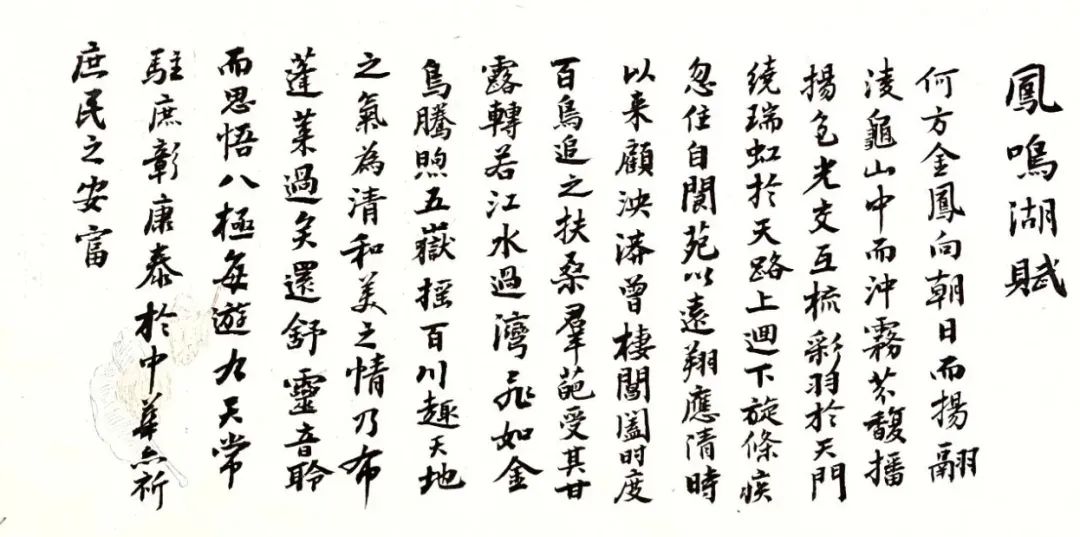 鳳鳴湖賦
何方金鳳向朝日而揚翮
淩龜山中而沖霧芬馥播
揚色光交互梳彩羽於天門
繞瑞虹於天路上迴下旋條疾
忽住自閬苑以遠翔應清時
以来顧泱漭曾棲閶闔时度
百鳥追之扶桑羣葩受其甘
露轉若江水過灣飛如金
烏騰煦五嶽摇百川趣天地
之氣為清和美之情乃布
蓬萊過矣還舒靈音聆
而思悟八極每遊九天常
駐庶彰康泰於中華亦祈
庶民之安富